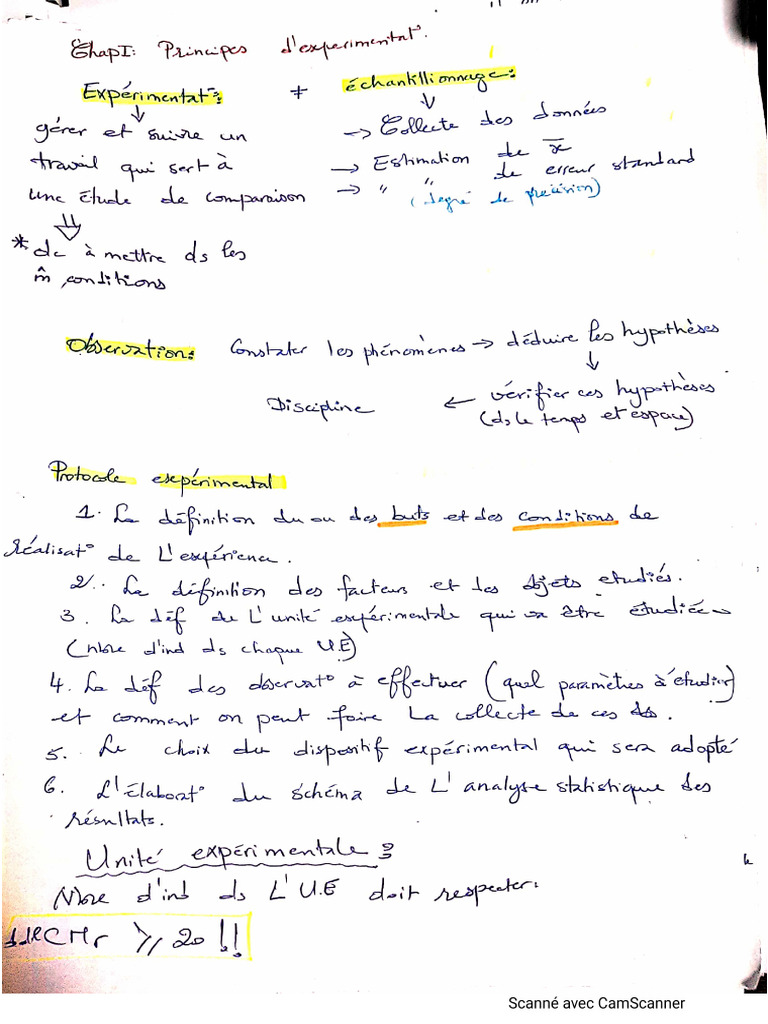 ChapI: Principes d'experimentat°.
Expérimentat°: ≠ échantillionnage:
gérer et suivre un
travail qui sert à
une étude de comparaison
-> Collecte des données
-> Estimation de x̄
-> " " de erreur standard
(degré de précision)
* dc à mettre ds les
m̂ conditions
Observation: Constater les phénomènes → déduire les hypothèses
↓
Discipline ← vérifier ces hypothèses
(ds le temps et espace)
Protocole expérimental
1. La définition du ou des buts et des conditions de
réalisat° de L'expérience.
2. La définition des facteurs et les objets etudiés.
3. La déf de L'unité expérimentale qui va être étudiée
(Nbre d'ind ds chaque U.E)
4. La déf des observat° à effectuer (quel paramètres à étudier)
et comment on peut faire La collecte de ces
5. Le choix du dispositif expérimental qui sera adopté
6. L'élaborat° du schéma de L'analyse statistique des
résultats.
Unité expérimentale:
Nbre d'ind ds L'U.E doit respecter:
⩾ 20 !!
Scanné avec CamScanner